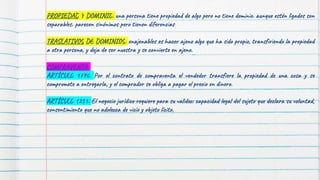 PROPIEDAD Y DOMINIO: una persona tiene propiedad de algo pero no tiene dominio. aunque estén ligados son
separables. parecen sinónimos pero tienen diferencias
TRASLATIVOS DE DOMINIOS: enajenables es hacer ajeno algo que ha sido propio, transfiriendo la propiedad
a otra persona, y deja de ser nuestra y se convierte en ajena.
COMPRAVENTA:
ARTÍCULO 1790. Por el contrato de compraventa el vendedor transfiere la propiedad de una cosa y se
compromete a entregarla, y el comprador se obliga a pagar el precio en dinero.
ARTÍCULO 1251. El negocio jurídico requiere para su validez: capacidad legal del sujeto que declara su voluntad,
consentimiento que no adolezca de vicio y objeto lícito.